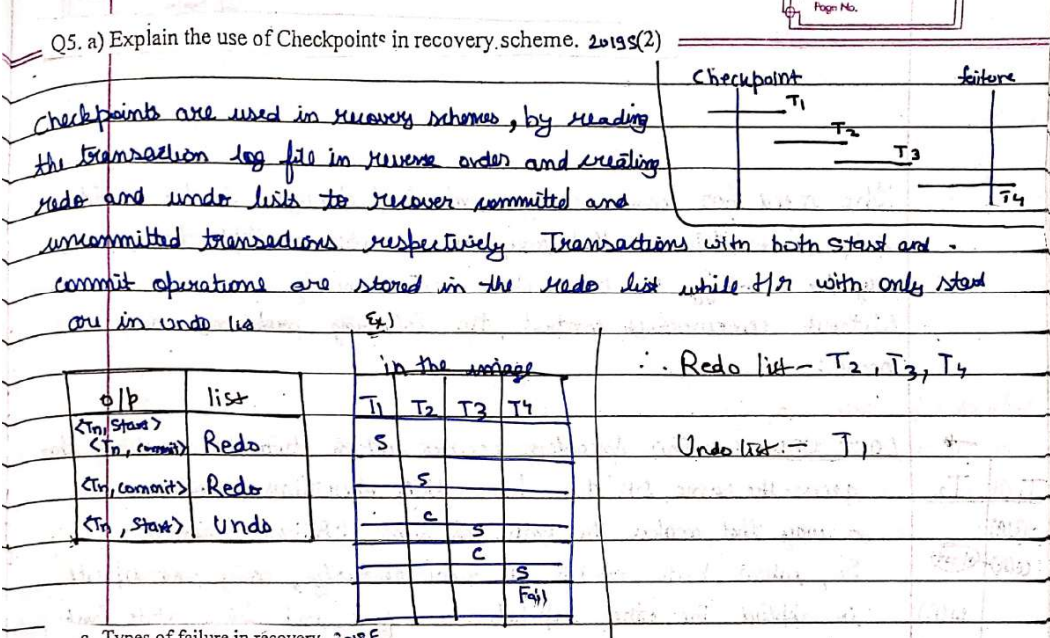 Page No.
Q5. a) Explain the use of Checkpoints in recovery scheme. 2019S(2)
Checkpoint failure
T1
T2
T3
T4
Checkpoints are used in recovery schemes, by reading
the transaction log file in reverse order and creating
redo and undo lists to recover committed and
uncommitted transactions respectively Transactions with both start and
commit operations are stored in the redo list while with only start
are in undo
Ex)
in the image
o/p list
<Tn, Start>
<Tn, commit> Redo
<Tn, commit> Redo
<Tn, Start> Undo
T1 T2 T3 T4
S
S
C
S
C
S
Fail
∴ Redo list - T2, T3, T4
Undo list :- T1
Types of failure in recovery